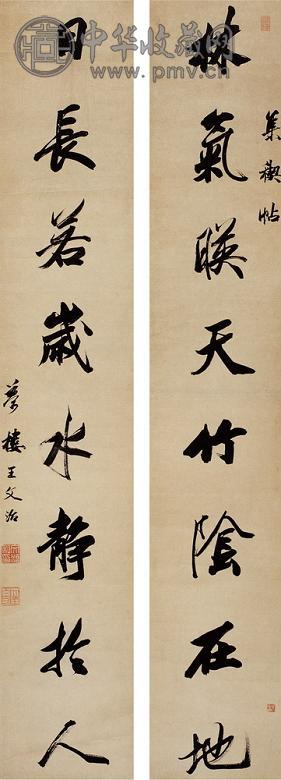 集禊帖
林氣暎天竹陰在地
日長若歲水靜於人
夢樓王文治
中华收藏网
www.pmv.cn